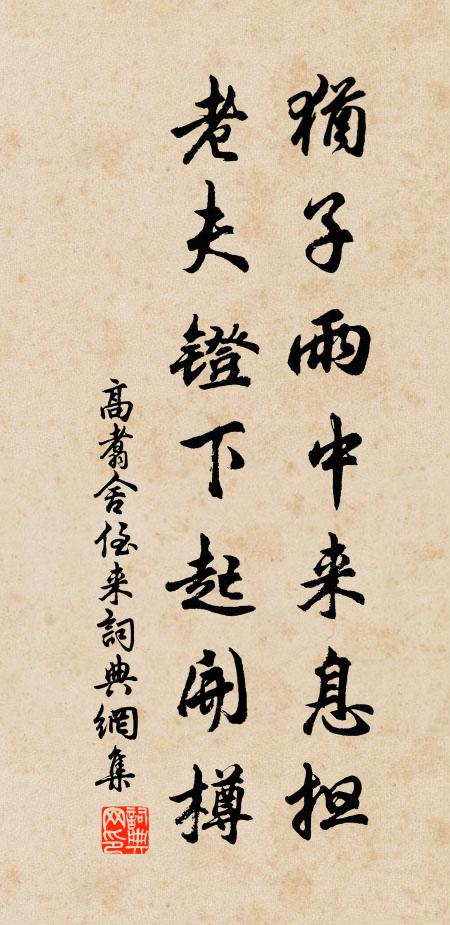 猶子雨中来息担
老夫鐙下起開樽
高翥舍侄来詞典網集
詞典網印